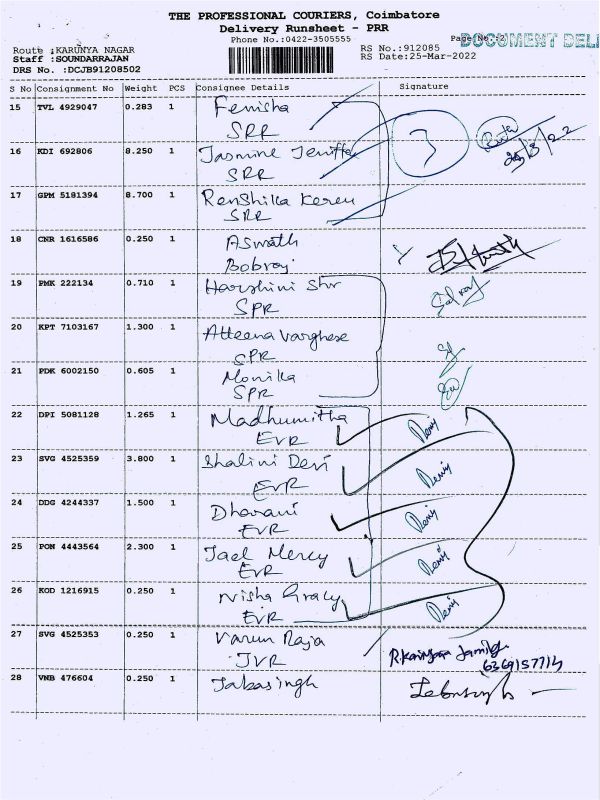 THE PROFESSIONAL COURIERS, Coimbatore
Delivery Runsheet - PRR
Phone No.:0422-3505555
DOCUMENT DELI
Route :KARUNYA NAGAR
RS No.:912085
Staff :SOUNDARRAJAN
RS Date:25-Mar-2022
DRS No. :DCJB91208502
S No Consignment No Weight PCS Consignee Details Signature
15 TVL 4929047 0.283 1 Femisha
SRR
3
25/3/22
16 KDI 692806 8.250 1 Jasmine Jeniffa
SRR
17 GPM 5181394 8.700 1 Renshika Keren
SRR
18 CNR 1616586 0.250 1 Aswath
Bobroy
19 PMK 222134 0.710 1 Harshini Shr
SPR
20 KPT 7103167 1.300 1 Atteena Varghese
SPR
21 PDK 6002150 0.605 1 Monika
SPR
22 DPI 5081128 1.265 1 Madhumitha
EVR
23 SVG 4525359 3.800 1 Shalini Devi
EVR
24 DDG 4244337 1.500 1 Dharani
EVR
25 PON 4443564 2.300 1 Jael Mercy
EVR
26 KOD 1216915 0.250 1 Nisha Gracy
EVR
27 SVG 4525353 0.250 1 Varun Raja
JVR
28 VNB 476604 0.250 1 Jabasingh